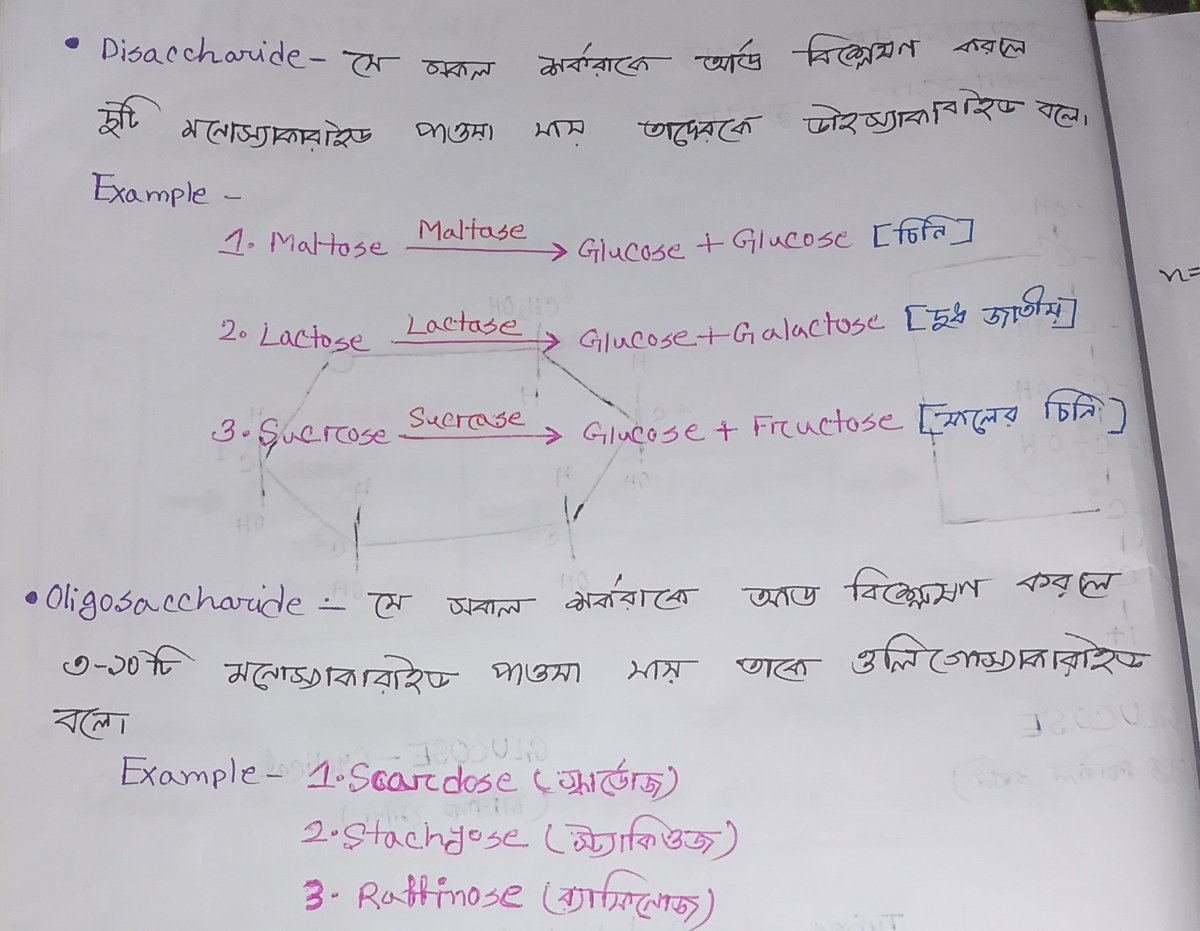 • Disaccharide - যে সকল শর্করাকে আর্দ্র বিশ্লেষণ করলে
দুটি মনোস্যাকারাইড পাওয়া যায় তাদেরকে ডাইস্যাকারাইড বলে।
Example -
1. Maltose Maltase → Glucose + Glucose [চিনি]
2. Lactose Lactase → Glucose + Galactose [দুধ জাতীয়]
3. Sucrose Sucrase → Glucose + Fructose [চিনি]
• Oligosaccharide :- যে সকল শর্করাকে আর্দ্র বিশ্লেষণ করলে
৩-১০টি মনোস্যাকারাইড পাওয়া যায় তাকে ওলিগোস্যাকারাইড
বলে।
Example - 1. Scardose (স্কার্ডোজ)
2. Stachyose (স্ট্যাকিওজ)
3. Raffinose (র‍্যাফিনোজ)
n=